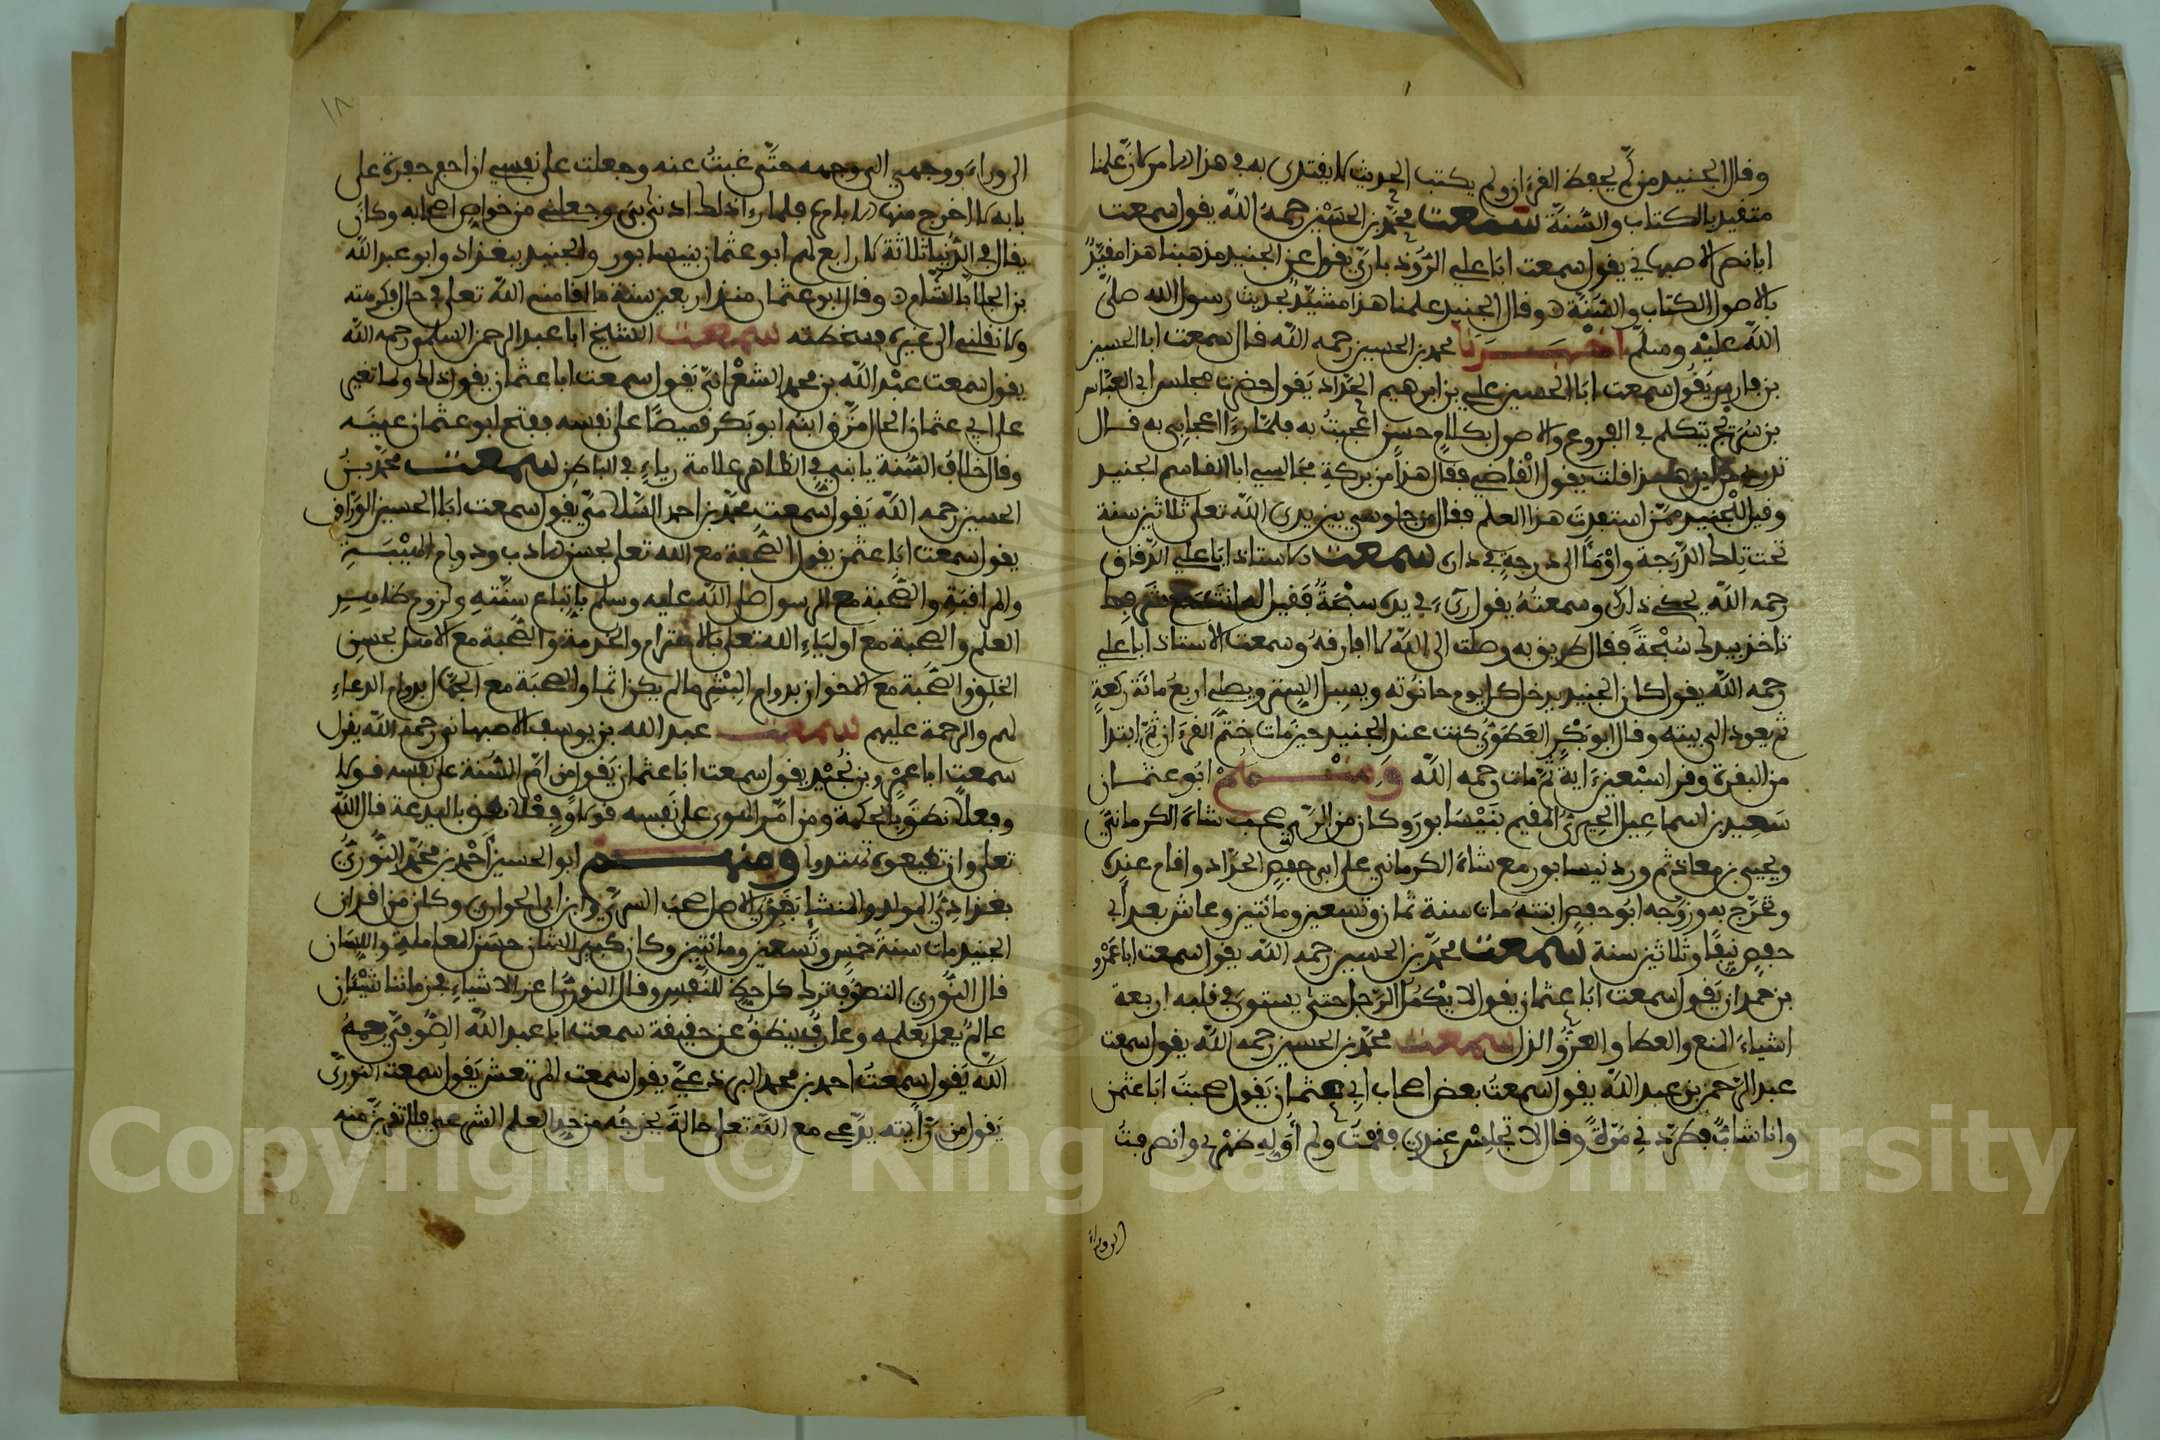 وقال الجنيد من لم يحفظ القرءان ولم يكتب الحديث لا يقتدى به في هذا الامر لان علمنا
متقيد بالكتاب والسنة سمعت محمد بن الحسين رحمه الله يقول سمعت
ابا نصر الاصبهاني يقول سمعت ابا علي الروذباري يقول عن الجنيد مذهبنا هذا مقيد
بالاصول الكتاب والسنة وقال الجنيد علمنا هذا مشيد بحديث رسول الله صلى
الله عليه وسلم اخبرنا محمد بن الحسين رحمه الله قال سمعت ابا الحسين
بن فارس يقول سمعت ابا الحسين علي بن ابرهيم الحداد يقول حضرت مجلس ابي العباس
بن سريج تكلم في الفروع والاصول بكلام حسن اعجبت به فلما رءا اعجابي به قال
تدري من اين هذا قلت يقول القاضي فقال هذا من بركة مجالسي ابا القاسم الجنيد
وقيل للجنيد ممن استفدت هذا العلم فقال من جلوسي بين يدي الله تعلى ثلاثين سنة
تحت تلك الدرجة واومأ الى درجة في داره سمعت الاستاذ ابا علي الدقاق
رحمه الله يحكي ذلك وسمعته يقول رءي في يده سبحة فقيل له انت مع شرفك
تاخذ بيدك سبحة فقال طريق به وصلت الى الله لا افارقه وسمعت الأستاذ ابا علي
رحمه الله يقول كان الجنيد يدخل كل يوم حانوته ويسبل الستر ويصلي اربع مائة ركعة
ثم يعود الى بيته وقال ابو بكر العطوي كنت عند الجنيد حين مات ختم القرءان ثم ابتدا
من البقرة وقرا سبعين ءاية ثم مات رحمه الله ومنهم ابو عثمان
سعيد بن اسماعيل الحيري المقيم بنيسابور وكان من الري صحب شاه الكرماني
ويحيى بن معاذ ثم ورد نيسابور مع شاه الكرماني على ابي حفص الحداد واقام عنده
وتخرج به وزوجه ابو حفص ابنته مات سنة ثمان وتسعين ومائتين وعاش بعد ابي
حفص نيفا وثلاثين سنة سمعت محمد بن الحسين رحمه الله يقول سمعت ابا عمرو
بن حمدان يقول سمعت ابا عثمان يقول لا يكمل الرجل حتى يستوي في قلبه اربعة
اشياء المنع والعطا والعز والذل سمعت محمد بن الحسين رحمه الله يقول سمعت
عبد الرحمن بن عبد الله يقول سمعت بعض اصحاب ابي عثمان يقول صحبت ابا عثمن
وانا شاب فطردني مرة وقال لا تجلس عندي فقمت ولم أوله ظهري وانصرفت
الى وراء
١٨
الى وراء ووجهي الى وجهه حتى غبت عنه وجعلت على نفسي ان احفر حفرة على
بابه لا اخرج منها الا بامره فلما رءا ذلك ادناني وجعلني من خواص اصحابه وكان
يقال في الدنيا ثلاثة لا رابع لهم ابو عثمان بنيسابور والجنيد ببغداد وابو عبد الله
بن الجلا بالشام وقال ابو عثمان منذ اربعين سنة ما اقامني الله تعلى في حال فكرهته
ولا نقلني الى غيره فسخطته سمعت الشيخ ابا عبد الرحمن السلمي رحمه الله
يقول سمعت عبد الله بن محمد الشعراني يقول سمعت ابا عثمان يقول ذلك ولما تغير
على ابي عثمان الحال مزق ابنه ابو بكر قميصا على نفسه ففتح ابو عثمان عينه
وقال خلاف السنة يا بني في الظاهر علامة رياء في الباطن سمعت محمد بن
الحسين رحمه الله يقول سمعت محمد بن احمد السلامتي يقول سمعت ابا الحسين الوراق
يقول سمعت ابا عثمن يقول الصحبة مع الله تعلى بحسن الادب ودوام الهيبة
والمراقبة والصحبة مع الرسول صلى الله عليه وسلم باتباع سنته ولزوم ظاهر
العلم والصحبة مع اولياء الله تعلى بالاحترام والخدمة والصحبة مع الاهل بحسن
الخلق والصحبة مع الاخوان بدوام البشر ما لم يكن اثما والصحبة مع الجهال بدوام الدعاء
لهم والرحمة عليهم سمعت عبد الله بن يوسف الاصبهاني رحمه الله يقول
سمعت ابا عمرو بن نجيد يقول سمعت ابا عثمان يقول من امر السنة على نفسه قولا
وفعلا نطق بالحكمة ومن امر الهوى على نفسه قولا وفعلا نطق بالبدعة قال الله
تعلى وان تطيعوه تهتدوا ومنهم ابو الحسين أحمد بن محمد النوري
بغدادي المولد والمنشإ بغوي الاصل صحب السري وابن ابي الحواري وكان من اقران
الجنيد مات سنة خمس وتسعين ومائتين وكان كبير الشان حسن المعاملة واللسان
قال النوري التصوف ترك كل حظ للنفس وقال النوري اعز الاشياء في زماننا شيئان
عالم يعمل بعلمه وعارف ينطق عن حقيقة سمعت ابا عبد الله الصوفي رحمه
الله يقول سمعت احمد بن محمد البرذعي يقول سمعت المرتعش يقول سمعت النوري
يقول من رأيته يدعي مع الله تعلى حالة تخرجه من حد العلم الشرعي فلا تقربن منه
Copyright © King Saud University